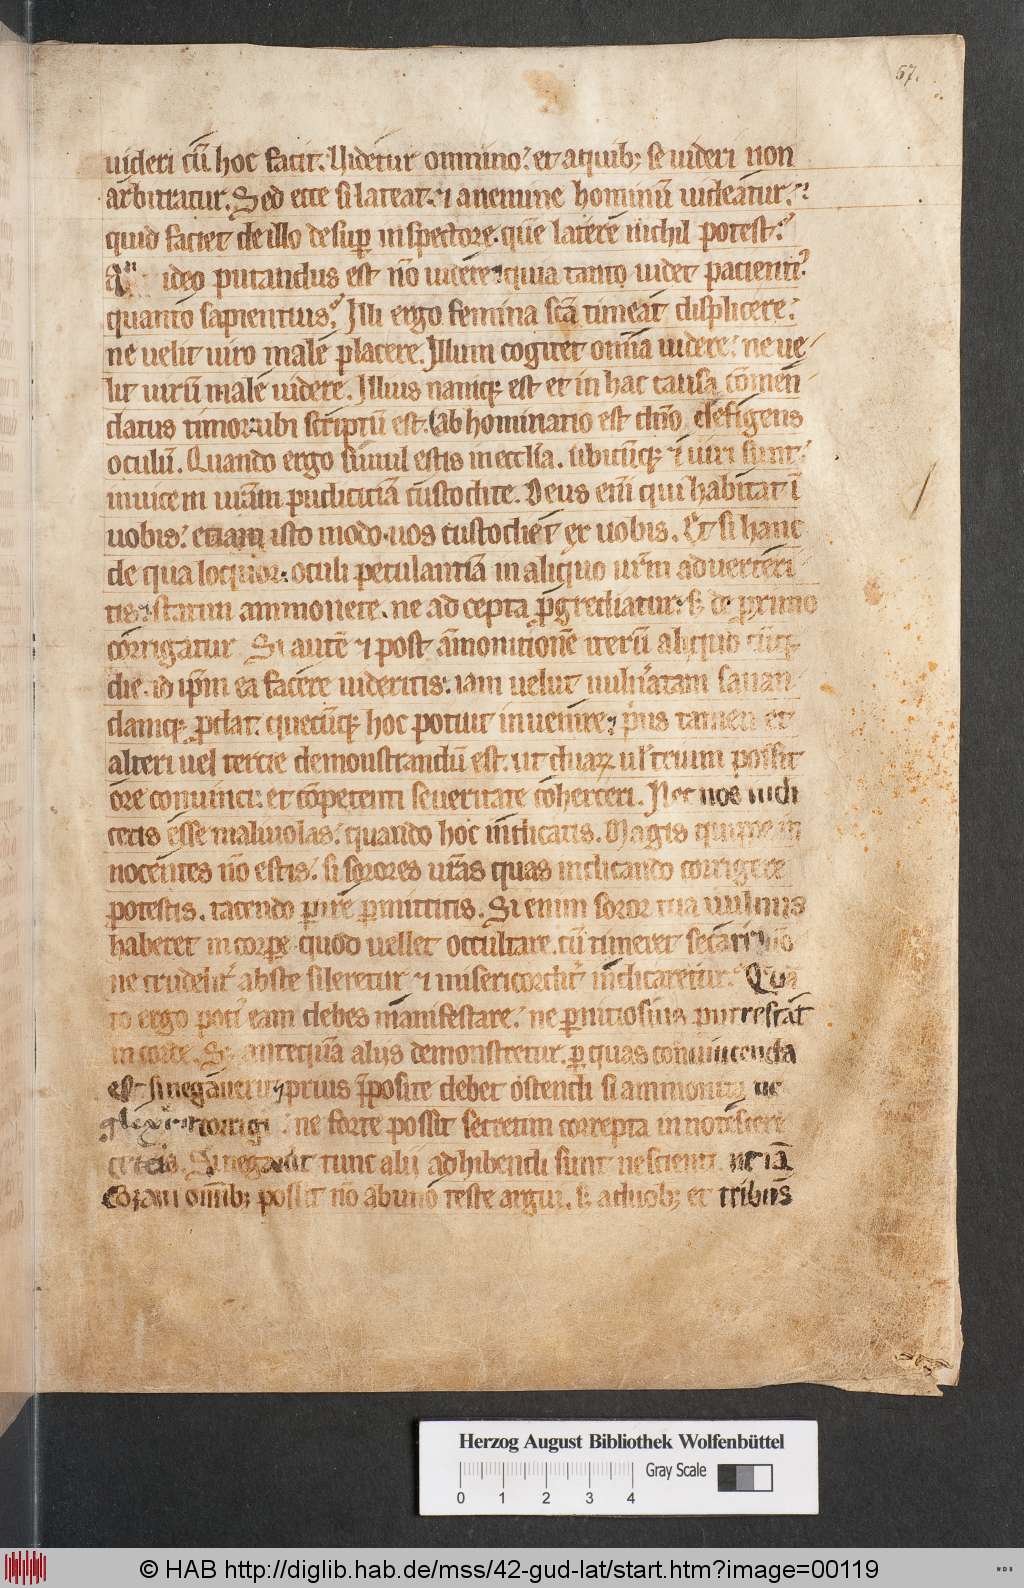 57.
uideri cū hoc facit. Videtur omnino. et a quib; se uideri non
arbitratur. Sed ecce si lateat. ⁊ a nemine hominū uideatur.
quid faciet de illo desup inspectore. quē latere nichil potest.
A ideo putandus est nō uidere. quia tanto uidet pacienti'
quanto sapientius. Illi ergo femina scā timeat displicere.
ne uelit uiro male placere. Illum cogitet omīa uidere. ne ue-
lit uirū male uidere. Illius namq; est et in hac causa cōmen-
datus timor. ubi scriptū est. Abhominatio est dn̄o defigens
oculū. Quando ergo simul estis in eccl̄ia. ubicūq; ⁊ uiri sunt.
inuicem ur̄am pudiciciā custodite. Deus eni qui habitat ī
uobis. etiam isto modo. uos custodiet ex uobis. Et si hanc
de qua loquor. oculi petulantiā in aliquo ur̄m aduerteri-
tis. statim ammonete. ne ad cepta p̄grediatur. s; de proximo
corrigatur. Si autē ⁊ post āmonitionē iterū aliquo cūq;
die. id ip̄m ea facere uideritis. iam uelut uuln'atam sanan-
damq; pdat. quecūq; hoc potuit inuenire. p'us tamen et
alteri uel tercie demonstrandū est. ut duar ul' trium possit
ore conuinci. et cōpetenti seueritate coherceri. Nec uos iudi
cetis esse maliuolas. quando hoc indicatis. Magis quippe in
nocentes nō estis. si sorores ur̄as quas indicando corrigere
potestis. tacendo pire pmittitis. Si enim soror tua uulnus
haberet in corpe quod uellet occultare. cū timeret secari. nō
ne crudelit' abs te sileretur ⁊ misericordit' indicaretur. Quā
to ergo poti' eam debes manifestare. ne pniciosius putrescat
in corde. S; antequā aliis demonstretur. p quas conuincenda
est si negauerit. prius p̄posite debet ostendi si ammonita ne
glexerit corrigi. ne forte possit secretius correpta innotescere
ceteris. Si negauit tunc alii adhibendi sunt nescienti. ut iā
coram omīb; possit nō ab uno teste argui. s; a duob; et tribus
Herzog August Bibliothek Wolfenbüttel
Gray Scale
0 1 2 3 4
© HAB http://diglib.hab.de/mss/42-gud-lat/start.htm?image=00119